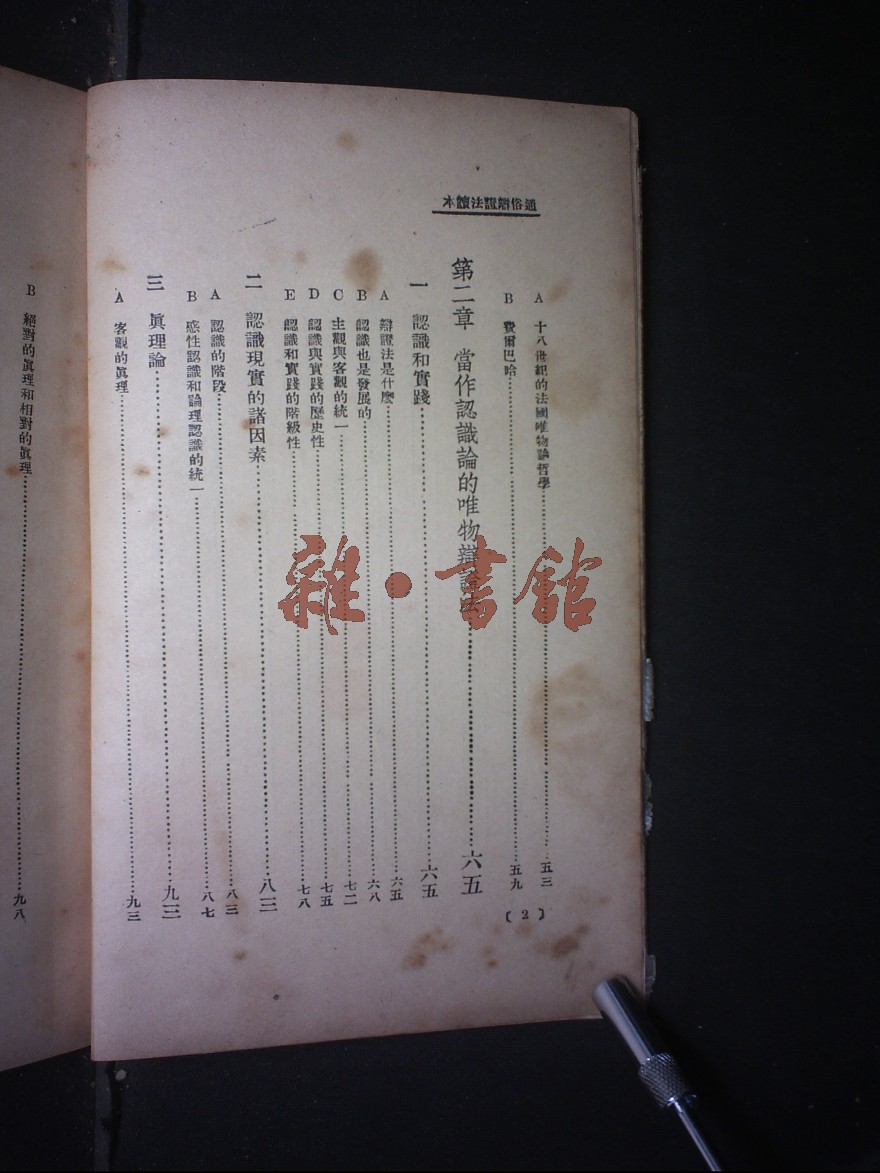 通俗辯證法讀本
A 十八世紀的法國唯物論哲學……五三
B 費爾巴哈……五九
第二章 當作認識論的唯物辯證法……六五
一 認識和實踐……六五
A 辯證法是什麽……六五
B 認識也是發展的……六八
C 主觀與客觀的統一……七二
D 認識與實踐的歷史性……七五
E 認識和實踐的階級性……七八
二 認識現實的諸因素……八三
A 認識的階段……八三
B 感性認識和論理認識的統一……八七
三 眞理論……九三
A 客觀的眞理……九三
〔2〕
B 絕對的眞理和相對的眞理……九八
雜·書館